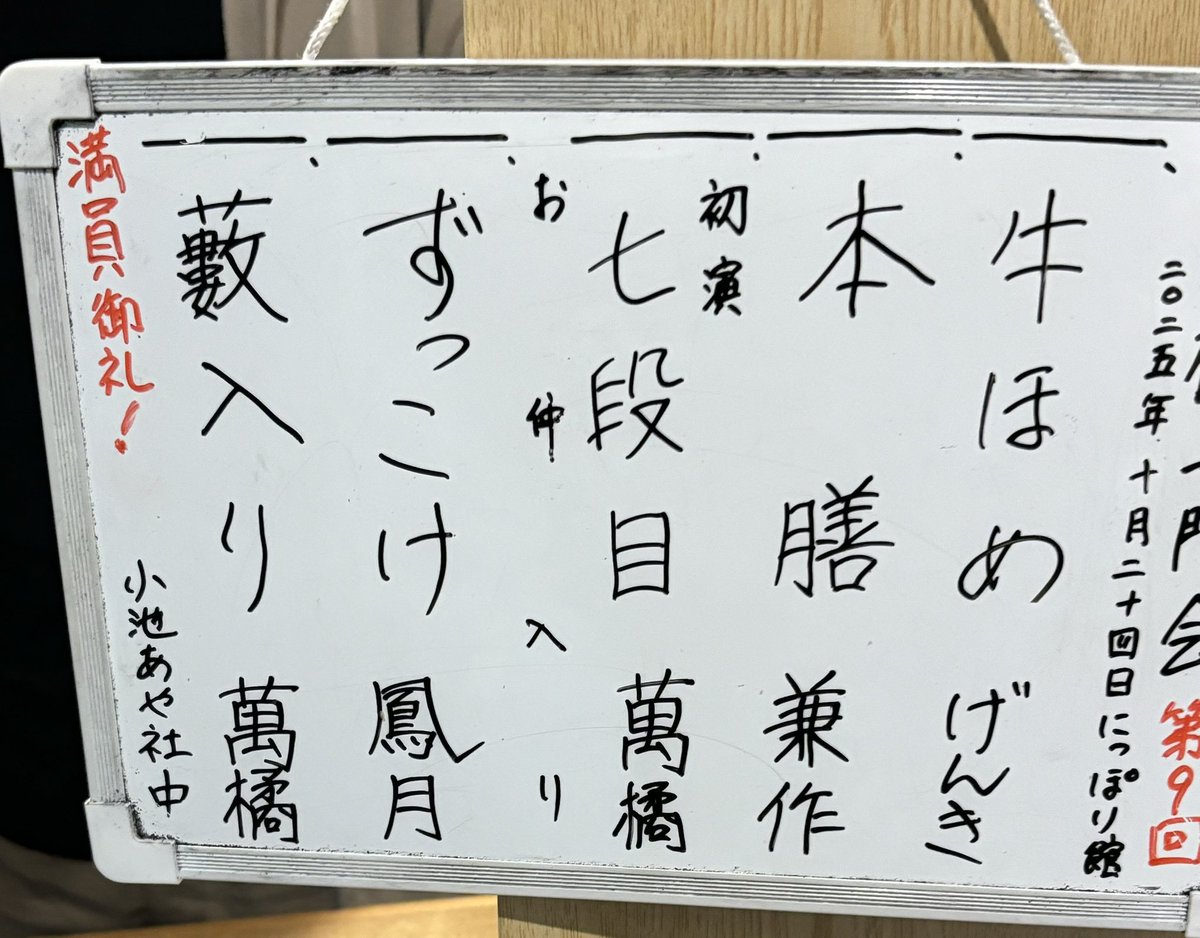 門会 第9回
二〇二五年十月二十四日にっぽり館
一、牛ほめ げんき
一、本膳 兼作
初演
一、七段目 萬橘
お仲入り
一、ずっこけ 鳳月
一、藪入り 萬橘
小池あや社中
満員御礼!